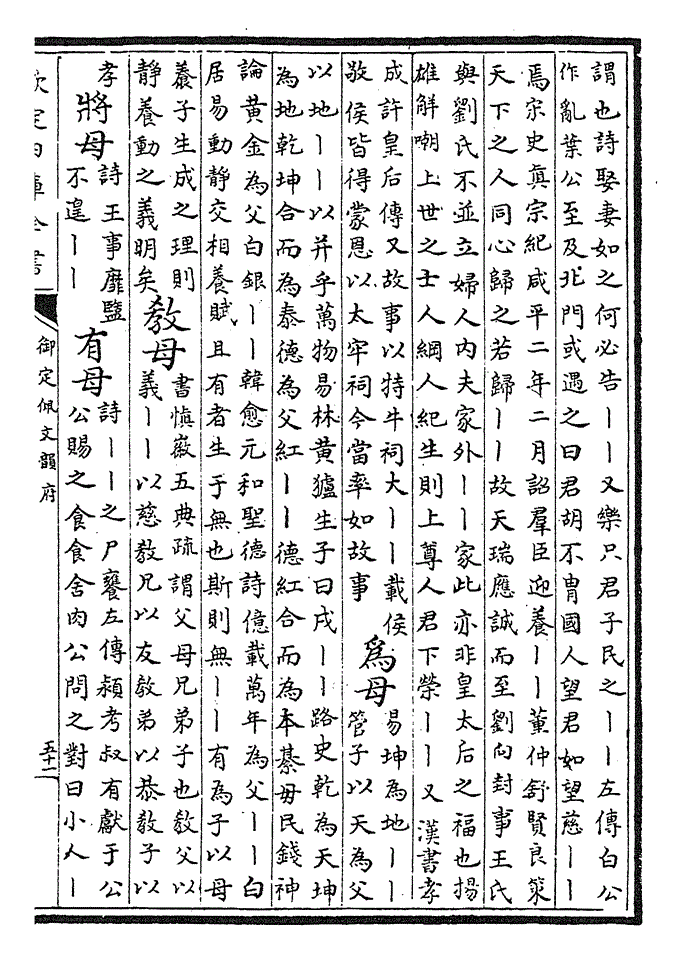 謂也詩娶妻如之何必告丨丨又樂只君子民之丨丨左傳白公
作亂葉公至及北門或遇之曰君胡不冑國人望君如望慈丨丨
焉宋史真宗紀咸平二年二月詔羣臣迎養丨丨董仲舒賢良策
天下之人同心歸之若歸丨丨故天瑞應誠而至劉向封事王氏
與劉氏不並立婦人内夫家外丨丨家此亦非皇太后之福也揚
雄解嘲上世之士人綱人紀生則上尊人君下榮丨丨又漢書孝
成許皇后傳又故事以特牛祠大丨丨載侯
敬侯皆得蒙恩以太牢祠今當率如故事
為母
易坤為地丨丨
管子以天為父
以地丨丨以并乎萬物易林黄獹生子曰戌丨丨路史乾為天坤
為地乾坤合而為泰德為父紅丨丨德紅合而為本綦毋民錢神
論黄金為父白銀丨丨韓愈元和聖德詩億載萬年為父丨丨白
居易動靜交相養賦且有者生于無也斯則無丨丨有為子以母
養子生成之理則
靜養動之義明矣
敎母
書慎徽五典疏謂父母兄弟子也敎父以
義丨丨以慈敎兄以友敎弟以恭敎子以
孝
將母
詩王事靡盬
不遑丨丨
有母
詩丨丨之尸饔左傳潁考叔有獻于公
公賜之食食舍肉公問之對曰小人丨
欽定四庫全書
御定佩文韻府
五十二